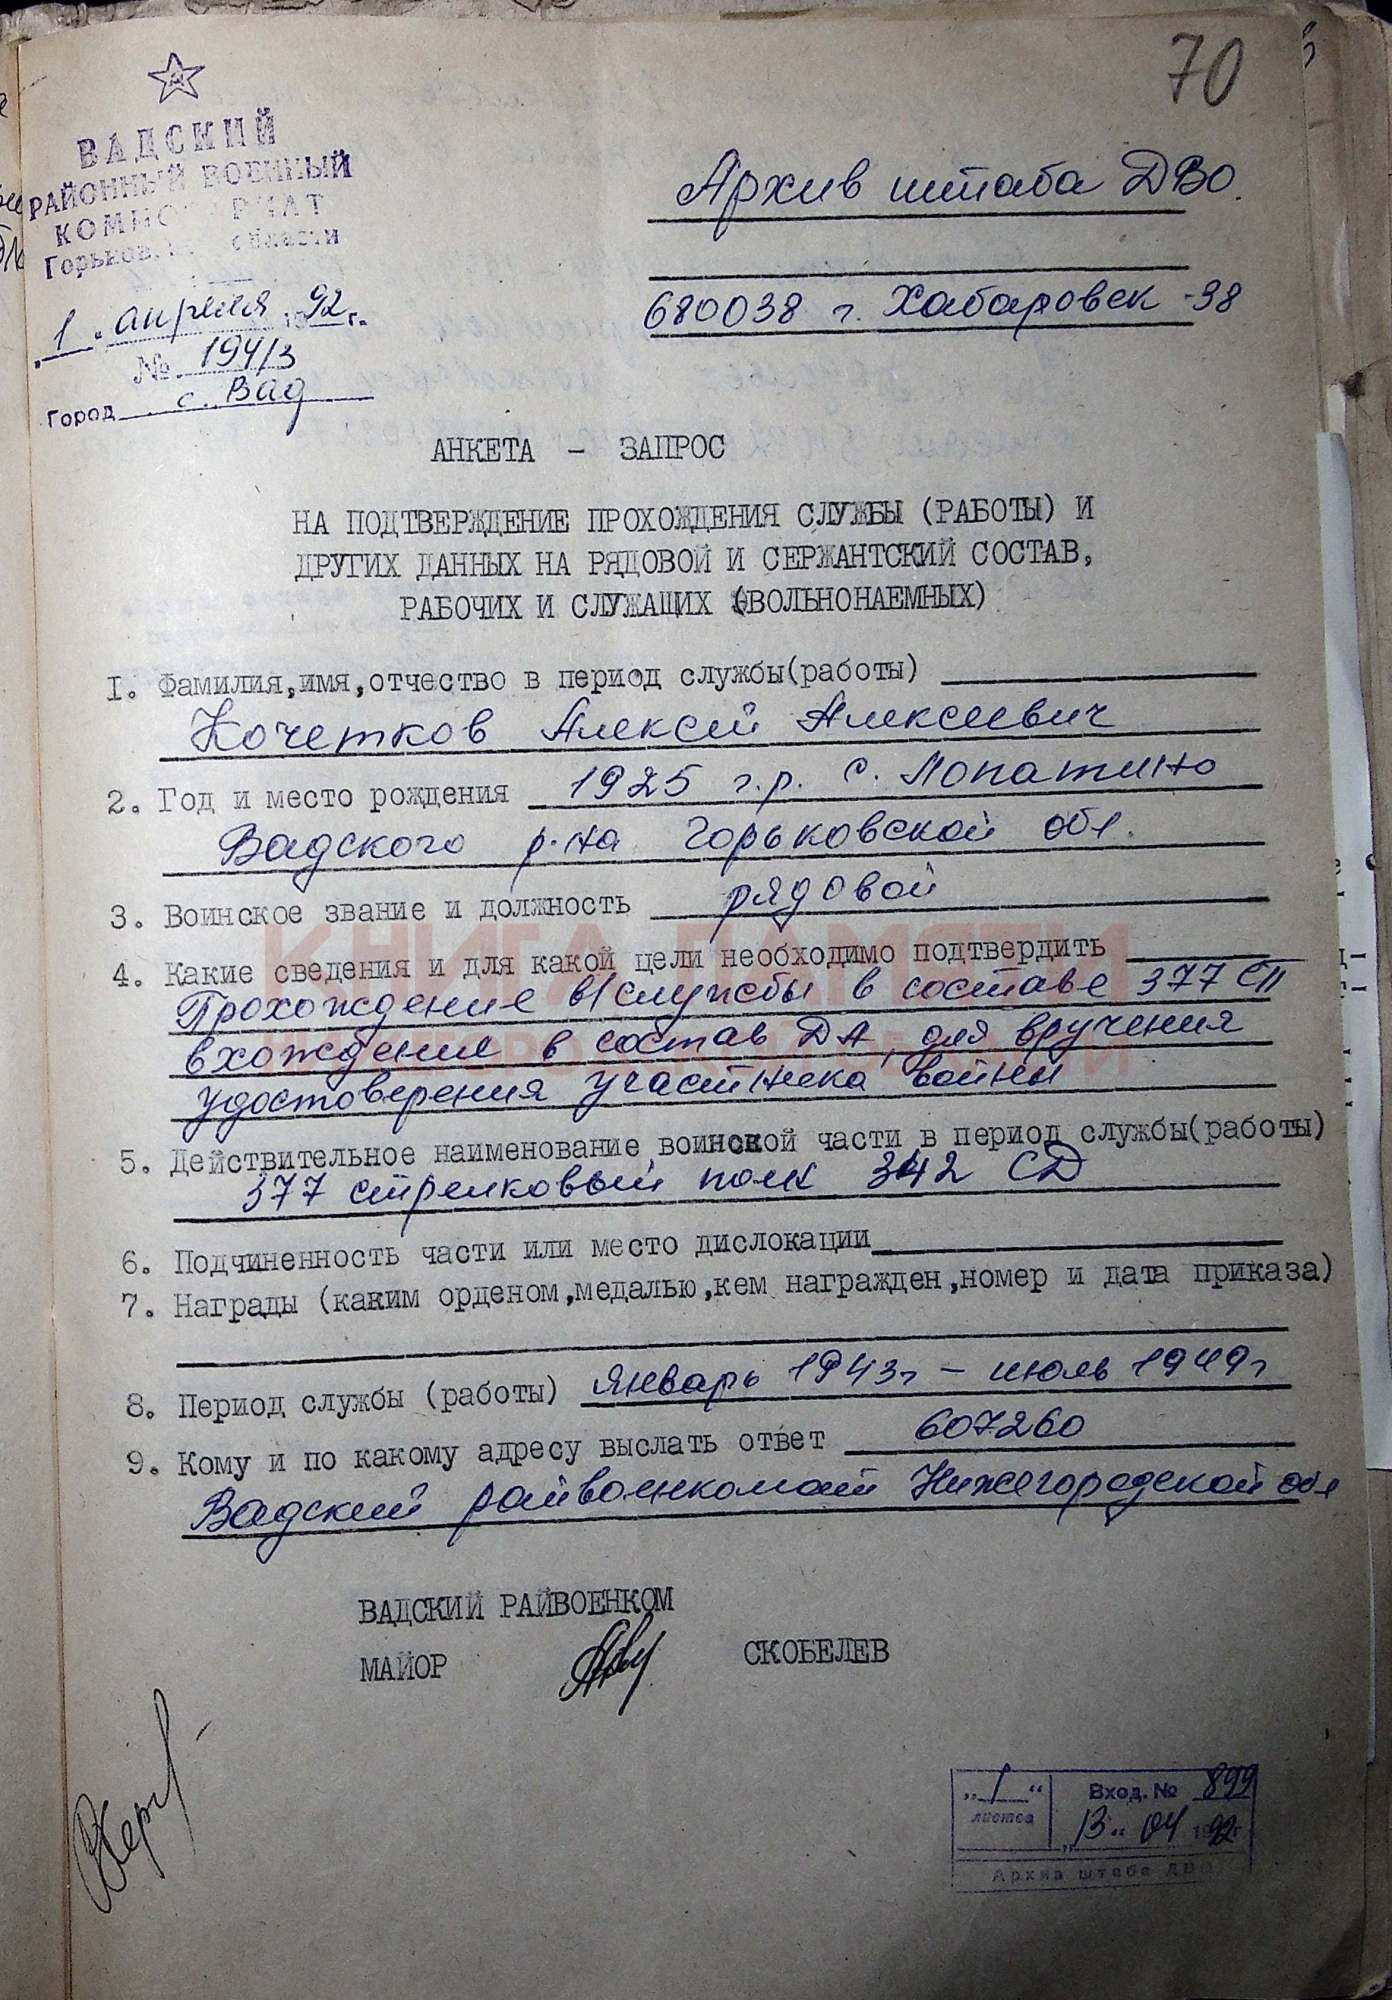 70
ВАДСКИЙ
РАЙОННЫЙ ВОЕННЫЙ
КОМИССАРИАТ
Горьковской области
„1" апреля 1992 г.
№ 194/3
Город с. Вад
Архив штаба ДВО.
680038 г. Хабаровск -38
АНКЕТА - ЗАПРОС
НА ПОДТВЕРЖДЕНИЕ ПРОХОЖДЕНИЯ СЛУЖБЫ (РАБОТЫ) И
ДРУГИХ ДАННЫХ НА РЯДОВОЙ И СЕРЖАНТСКИЙ СОСТАВ,
РАБОЧИХ И СЛУЖАЩИХ (ВОЛЬНОНАЕМНЫХ)
1. Фамилия,имя,отчество в период службы(работы)
Кочетков Алексей Алексеевич
2. Год и место рождения 1925 г.р. с. Лопатино
Вадского р-на Горьковской обл.
3. Воинское звание и должность рядовой
КНИГА ПАМЯТИ
4. Какие сведения и для какой цели необходимо подтвердить
Прохождение в/службы в составе 377 СП
вхождение в состав ДА, для вручения
удостоверения участника войны
5. Действительное наименование воинской части в период службы(работы)
377 стрелковый полк 342 СД
6. Подчиненность части или место дислокации
7. Награды (каким орденом,медалью,кем награжден,номер и дата приказа)
8. Период службы (работы) январь 1943г - июль 1949г
9. Кому и по какому адресу выслать ответ 607260
Вадский райвоенкомат Нижегородской обл
ВАДСКИЙ РАЙВОЕНКОМ
МАЙОР СКОБЕЛЕВ
„1" листов Вход. № 899
„13" 04 1992г.
Архив штаба ДВО